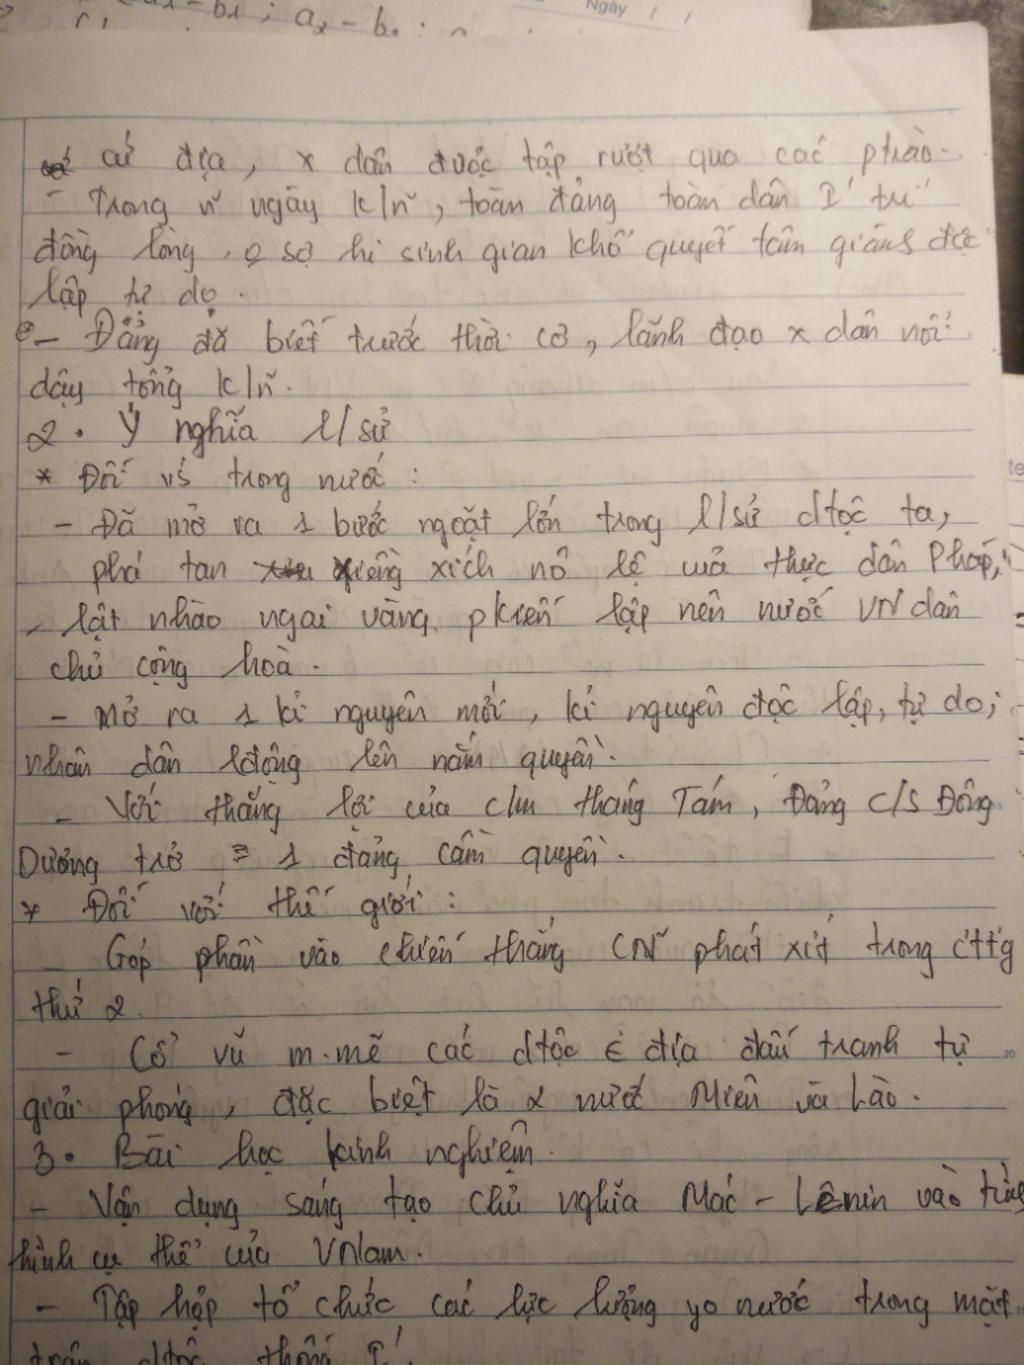 a₂ - b₂ ;
Ngày / /
cứ địa, x dân được tập rượt qua các ptrào.
- Trong n~ ngày k/n~, toàn đảng toàn dân I' trí
đồng lòng, o sợ hi sinh gian khổ quyết tâm giành độc
lập tự do.
- Đảng đã biết trước thời cơ, lãnh đạo x dân nổi
dậy tổng k/n~.
2. Ý nghĩa l/sử
* Đối vs trong nước:
- Đã mở ra 1 bước ngoặt lớn trong l/sử dtộc ta,
phá tan xiềng xích nô lệ của thực dân Pháp,
lật nhào ngai vàng pkiến lập nên nước VN dân
chủ cộng hoà.
- Mở ra 1 kỉ nguyên mới, kỉ nguyên độc lập, tự do;
nhân dân lđộng lên nắm quyền.
- Với thắng lợi của c/m tháng Tám, Đảng c/s Đông
Dương trở = 1 đảng cầm quyền.
* Đối với thế giới:
- Góp phần vào chiến thắng CN~ phát xít trong cttg
thứ 2.
- Cổ vũ m.mẽ các dtộc € địa đấu tranh tự
giải phóng, đặc biệt là 2 nước Miên và Lào.
3. Bài học kinh nghiệm.
- Vận dụng sáng tạo chủ nghĩa Mác - Lênin vào tình
hình cụ thể của VNam.
- Tập hợp tổ chức các lực lượng yo nước trong mặt
trận dtộc thống I'.